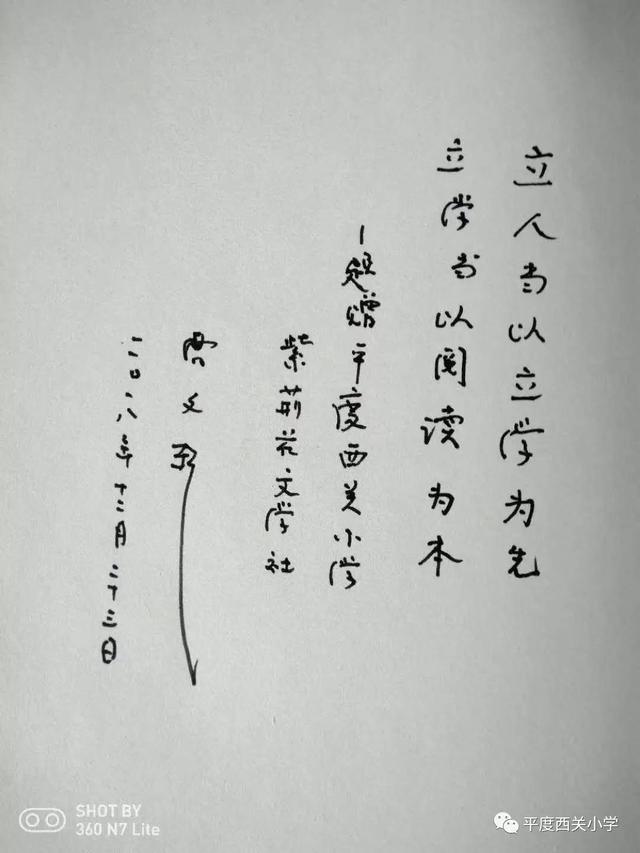 立人当以立学为先
立学当以阅读为本
一题赠平度西关小学
紫荆花文学社
曹文轩
二〇一八年十二月二十三日
SHOT BY
360 N7 Lite
平度西关小学